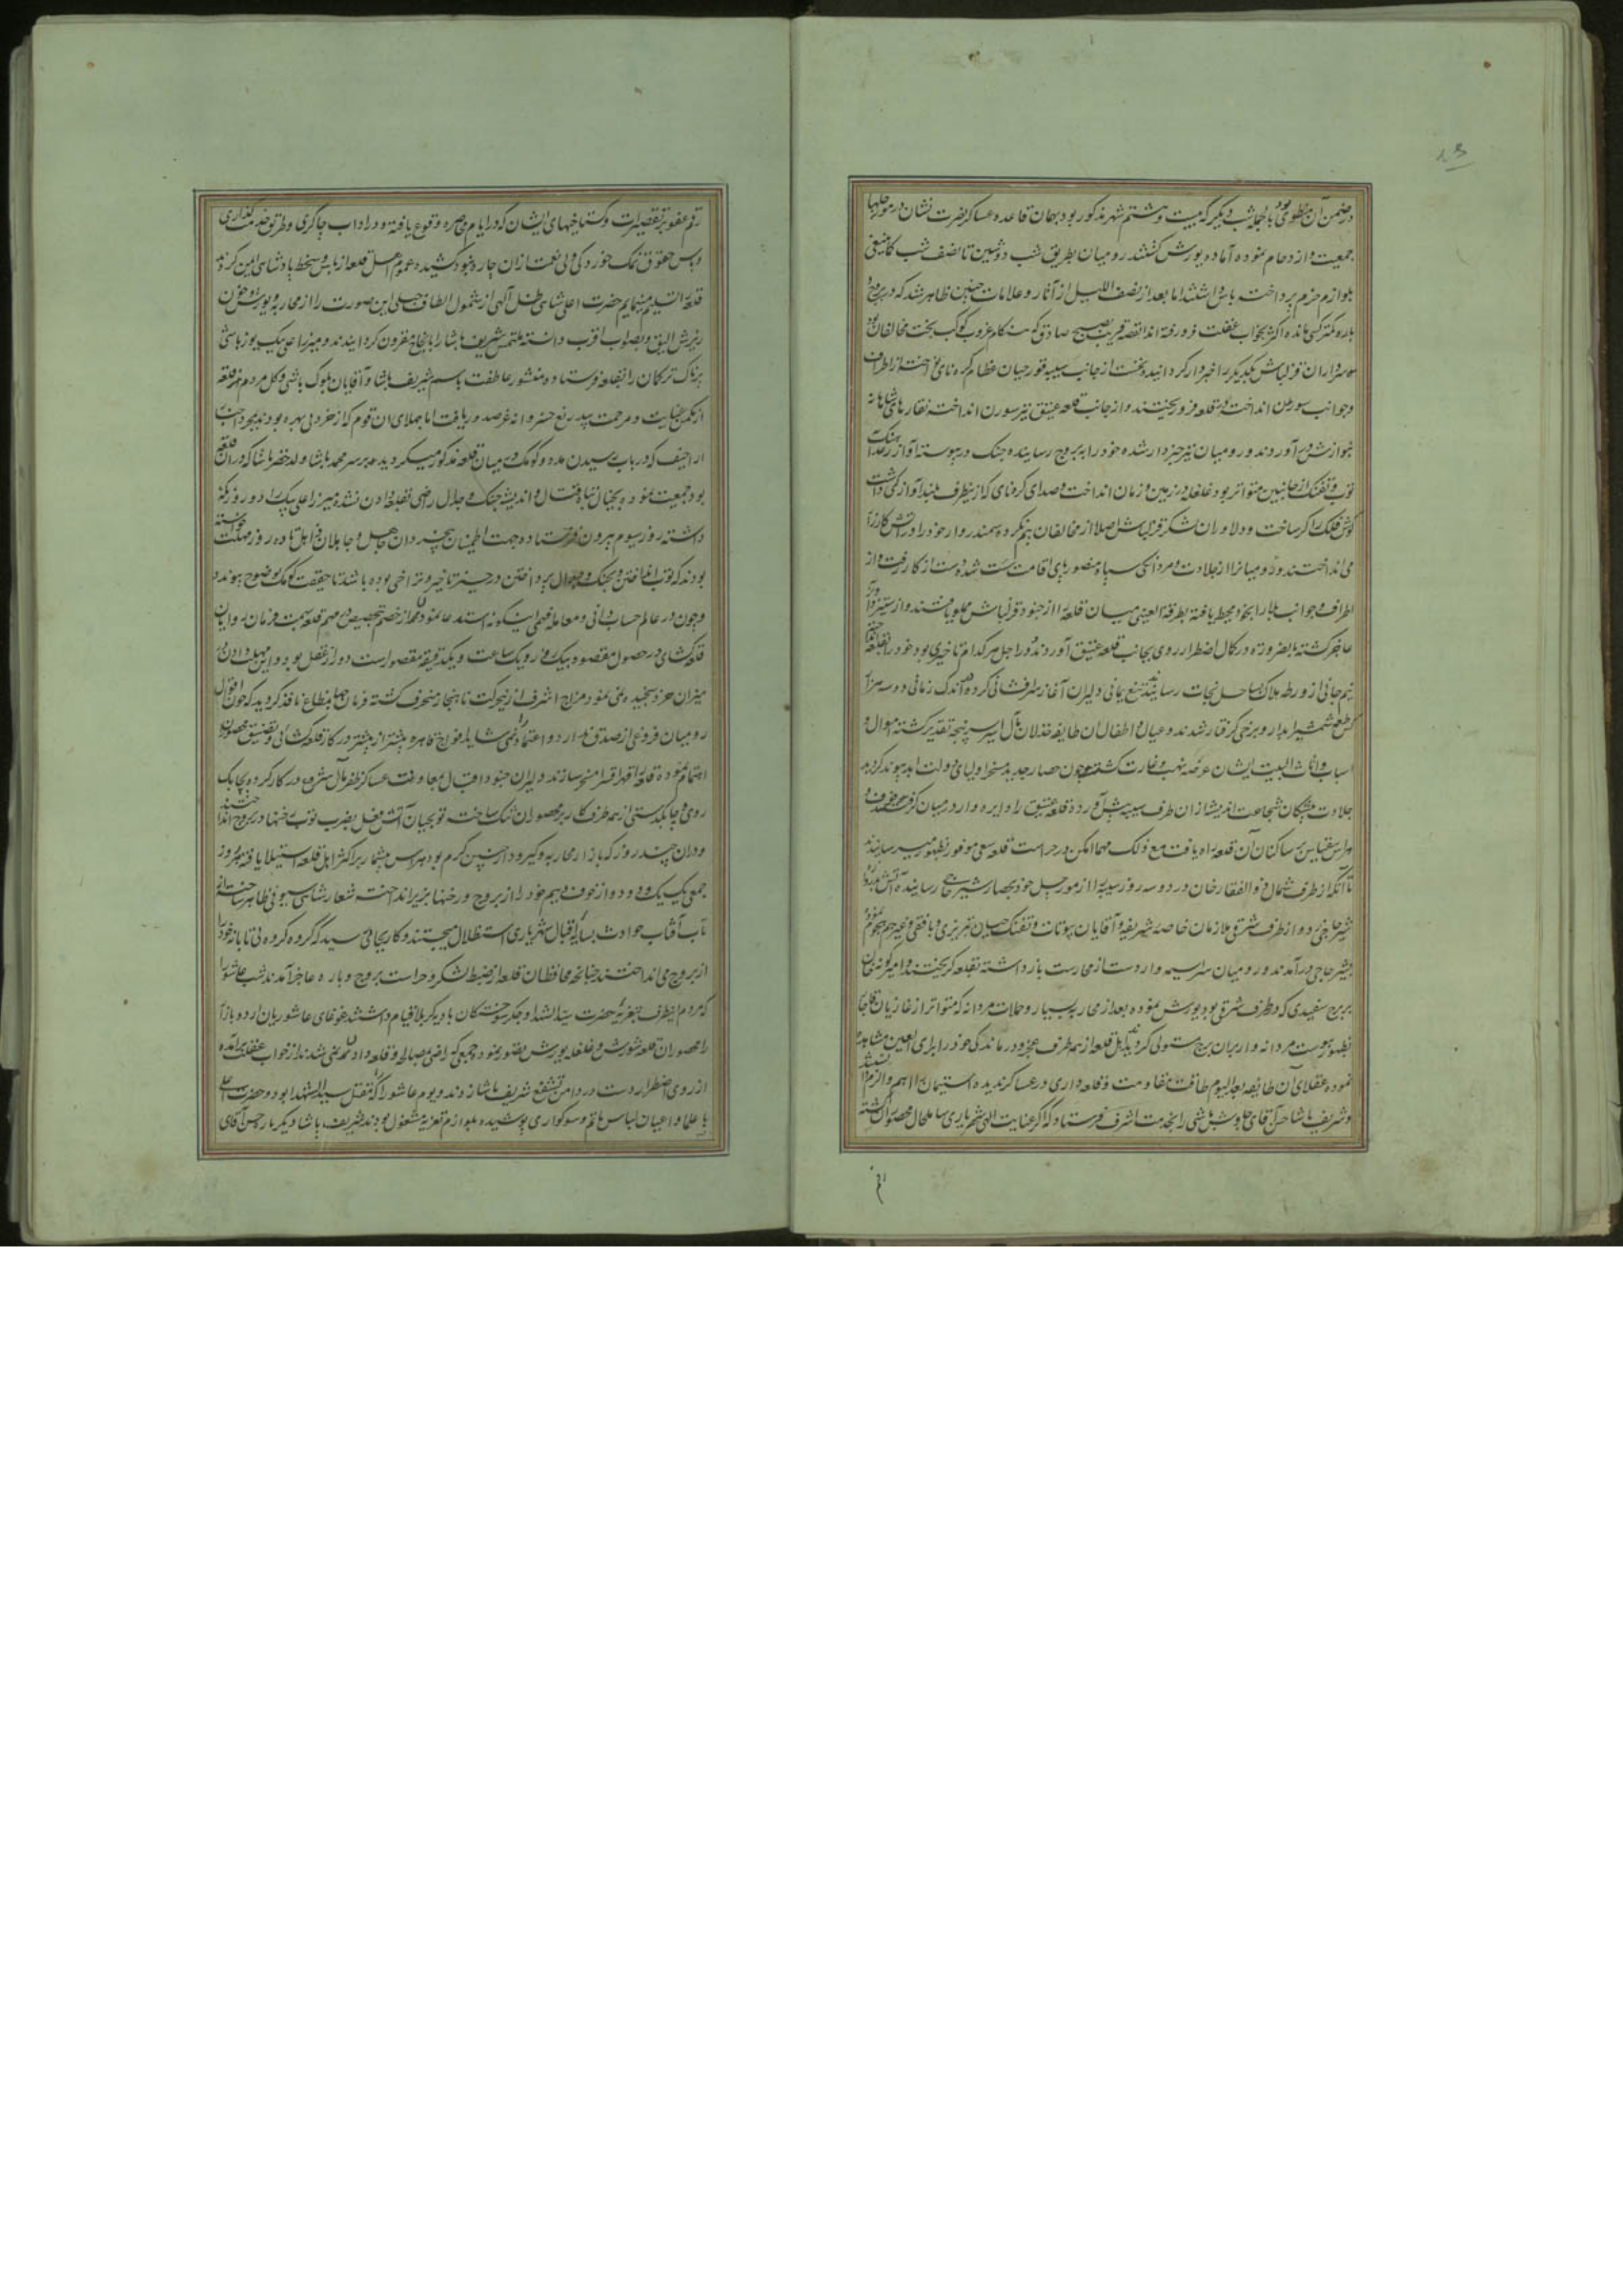 در ضمن آن منطوی بود بالجمله شب دیگر که بیست و هشتم شهر مذکور بود بهمان قاعده عساکر نصرت نشان در مورچلها
جمعیت و ازدحام نموده آماده یورش گشتند رومیان بطریق شب دوشین تا نصف شب کاینبغی
بلوازم حزم پرداخته پاس داشتند اما بعد از نصف اللیل از آثار و علامات چنین ظاهر شد که در برج و
باره کمتر کسی مانده اکثر بخواب غفلت فرو رفته اند القصه قریب بصبح صادق که هنکام غروب کوکب بخت مخالفان بود
سرداران قزلباش یکدیگر را خبردار کردانیده نخست از جانب سیبه قورچیان عظام کرنای انداخته از اطراف
و جوانب سورن انداخته بر قلعه فرو ریختند و از جانب قلعه عتیق نیز سورن انداخته نقارهای شاهانه
بنوازش در آوردند و رومیان نیز خبردار شده خود را به بروج رسانیده جنک در پیوست آواز رعد آهنک
توپ و تفنک از جانبین متواتر بود غلغله در زمین و زمان انداخت و صدای کرنای که از هر طرف بلند آواز کشت
کوش فلک را کر ساخت و دلاوران لشکر قزلباش اصلا از مخالفان نکرده سمندر وار خود را در آتش کارزار
می انداختند و رومیانرا از جلادت و مردانکی سپاه منصور پای اقامت سست شده دست از کار رفت و از
اطراف و جوانب بلا را بخود محیط یافته بطرفة العینی میان قلعه را از جنود قزلباش مملو یافتند و از ستیز و آویز
عاجز کشته بالضروره در کمال اضطرار روی بجانب قلعه عتیق آوردند و در اجل هر کدام تاخیری بود خود را بقلعه انداخته
نیم جانی از ورطه هلاک بساحل نجات رسانیدند تیغ یمانی دلیران آغاز سرافشانی کرده در اندک زمانی دو سه هزار
کس طعمه شمشیر آبدار و برخی گرفتار شدند و عیال و اطفال آن طایفه خذلان مآل اسیر پنجه تقدیر کشته اموال و
اسباب و اثاث البیت ایشان عرضه نهب و غارت کشت و چون حصار جدید مسخر اولیای دولت ابد پیوند کردید
جلادت پیشکان شجاعت اندیشه از آن طرف سیبه پیش آورده قلعه عتیق را دایره وار در میان گرفتند و خوف و
هراس بیقیاس بر ساکنان آن قلعه راه یافت مع ذلک مهما امکن در حراست قلعه سعی موفور بظهور میرسانیدند
تا آنکه از طرف شمال ذوالفقار خان در دو سه روز سیبه را از مورچل خود بحصار شیر حاجی رسانیده آتش در
شیر حاجی زد و از طرف شرقی ملازمان خاصه شریفه و آقایان بیوتات و تفنکچیان تبریزی و بافقی و غیرهم هجوم نموده
بشیر حاجی در آمدند و رومیان سراسیمه وار دست از محارست باز داشته بقلعه گریختند و امیر گونه خان
ببرج سفیدی که در طرف شرقی بود یورش نموده بعد از محاربه بسیار و حملات مردانه که متواتر از غازیان قاجار
بظهور پیوست مردانه وار بران برج مستولی گردید اهل قلعه از همه طرف عجز و درماندگی خود را برای العین مشاهده
نموده عقلای آن طایفه بعد الیوم طاقت مقاومت و قلعه داری در عساکر ندیده استیمان را اهم و الزم دانستند
و شریف پاشا حسن آقای چاوش باشی را بخدمت اشرف فرستاد که اگر عنایت الهی شهریاری شامل حال محصوران کشته
رقم عفو بر تقصیرات و گستاخیهای ایشان که در ایام محاصره وقوع یافته و در آداب چاکری و طریق خدمتگذاری
و پاس حقوق نمک خوردگی ولی نعمت از آن چاره نبود کشیده عموم اهل قلعه از باس و سخط پادشاهی ایمن گردند
قلعه را تسلیم مینمایم حضرت اعلی شاهی ظل آلهی از شمول الطاف جبلی این صورت را از محاربه و یورش و خون
ریزش الیق و بصواب اقرب دانسته ملتمس شریف پاشا را بانجاح مقرون کردانیدند و میرزا علی بیک یوزباشی
پرناک ترکمان را بقلعه فرستاده منشور عاطفت باسم شریف پاشا و آقایان بلوک باشی و کل مردم قلعه
از مکمن عنایت و مرحمت بیدریغ خسروانه عز صدور یافت اما جهلای آن قوم که از خرد بی بهره بودند بمجرد
اراجیف که در باب رسیدن مدد و کومک در میان قلعه مذکور میکردید بر سر محمد پاشا ولد خضر پاشا که در آن قلعه
بود جمعیت نموده بخیال تباه قتال و اندیشه جنک و جدال راضی بقلعه دادن نشده میرزا علی بیک را دو روز نگاه
داشته روز سیوم بیرون فرستاده جهت اطمینان بیخردان جاهل و جاهلان غافل تا ده روز مهلت خواسته
بودند که توپ انداختن و بجنک و جدال پرداختن در حیز تاخیر و تراخی بوده باشد تا حقیقت کومک بوضوح پیوندد
و چون در عالم حساب دانی و معامله فهمی اینگونه استدعا نمودن از خصم تخصیص در مهم قلعه که همت فرمان روایان
قلعه کشای در حصول مقصود بیک روز و یک ساعت و یکدقیقه مقصور است دور از عقل بود و این مهلت دادن در
میزان خرد سنجیده نمی نمود مزاج اشرف ازین حرکت ناهنجار منحرف کشته فرمان جهان مطاع نافذ کردید که چون اقوال
رومیان فروغی از صدق ندارد و اعتماد را نمی شاید افواج قاهره بیشتر از پیشتر در کار قلعه کشائی و تضییق محصوران
اهتمام نموده قلعه را قهرا قسرا مسخر سازند دلیران جنود اقبال بمعاونت عساکر ظفر مآل شروع در کار کرده بچابک
روی و چابکدستی از همه طرف کار بر محصوران تنک ساخته توپچیان آتش فعل بضرب توپ رخنها در بروج انداختند
و در آن چند روز که بازار محاربه و گیر و دار چنین گرم بود هراس بیشمار بر اکثر اهل قلعه استیلا یافته هر روز
جمعی یک یک و دو دو از خوف و بیم خود را از بروج و رخنها بزیر انداخته شعار شاهی سیونی ظاهر ساخته از
تاب آفتاب حوادث بسایه اقبال شهریاری استظلال میجستند و کار بجائی رسید که گروه گروه بی تابانه خود را
از بروج می انداختند چنانچه محافظان قلعه از ضبط لشکر و حراست بروج و باره عاجز آمدند شب عاشورا
که مردم اینطرف بتعزیه حضرت سید الشهدا و جگر سوختگان بادیه کربلا قیام داشتند غوغای عاشوریان اردو بازار
را محصوران قلعه شورش و غلغله یورش تصور نموده جمعی که راضی بمصالحه و قلعه دادن نمی شدند از خواب غفلت در آمده
از روی اضطرار دست در دامن تشفع شریف پاشا زدند و یوم عاشورا که مقتل سید الشهدا بود و حضرت اعلی
با علما و اعیان لباس ماتم و سوگواری پوشیده بلوازم تعزیه مشغول بودند شریف پاشا دیگر بار حسن آقای